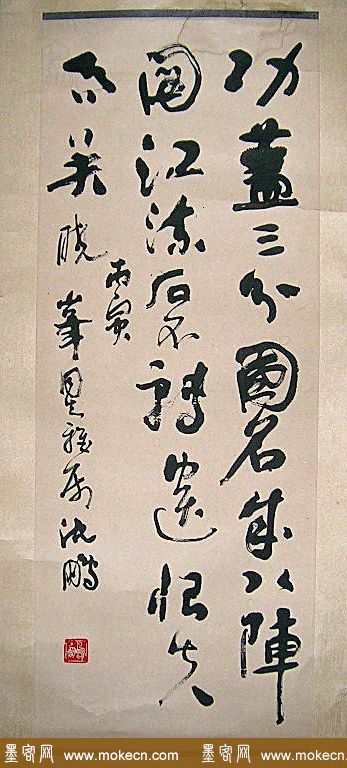 功蓋三分國名成八陣
圖江流石不轉遺恨失
吞吴
丙寅
晓峯同志雅属沈鹏
墨客网 www.mokecn.com 墨客网 www.mokecn.com